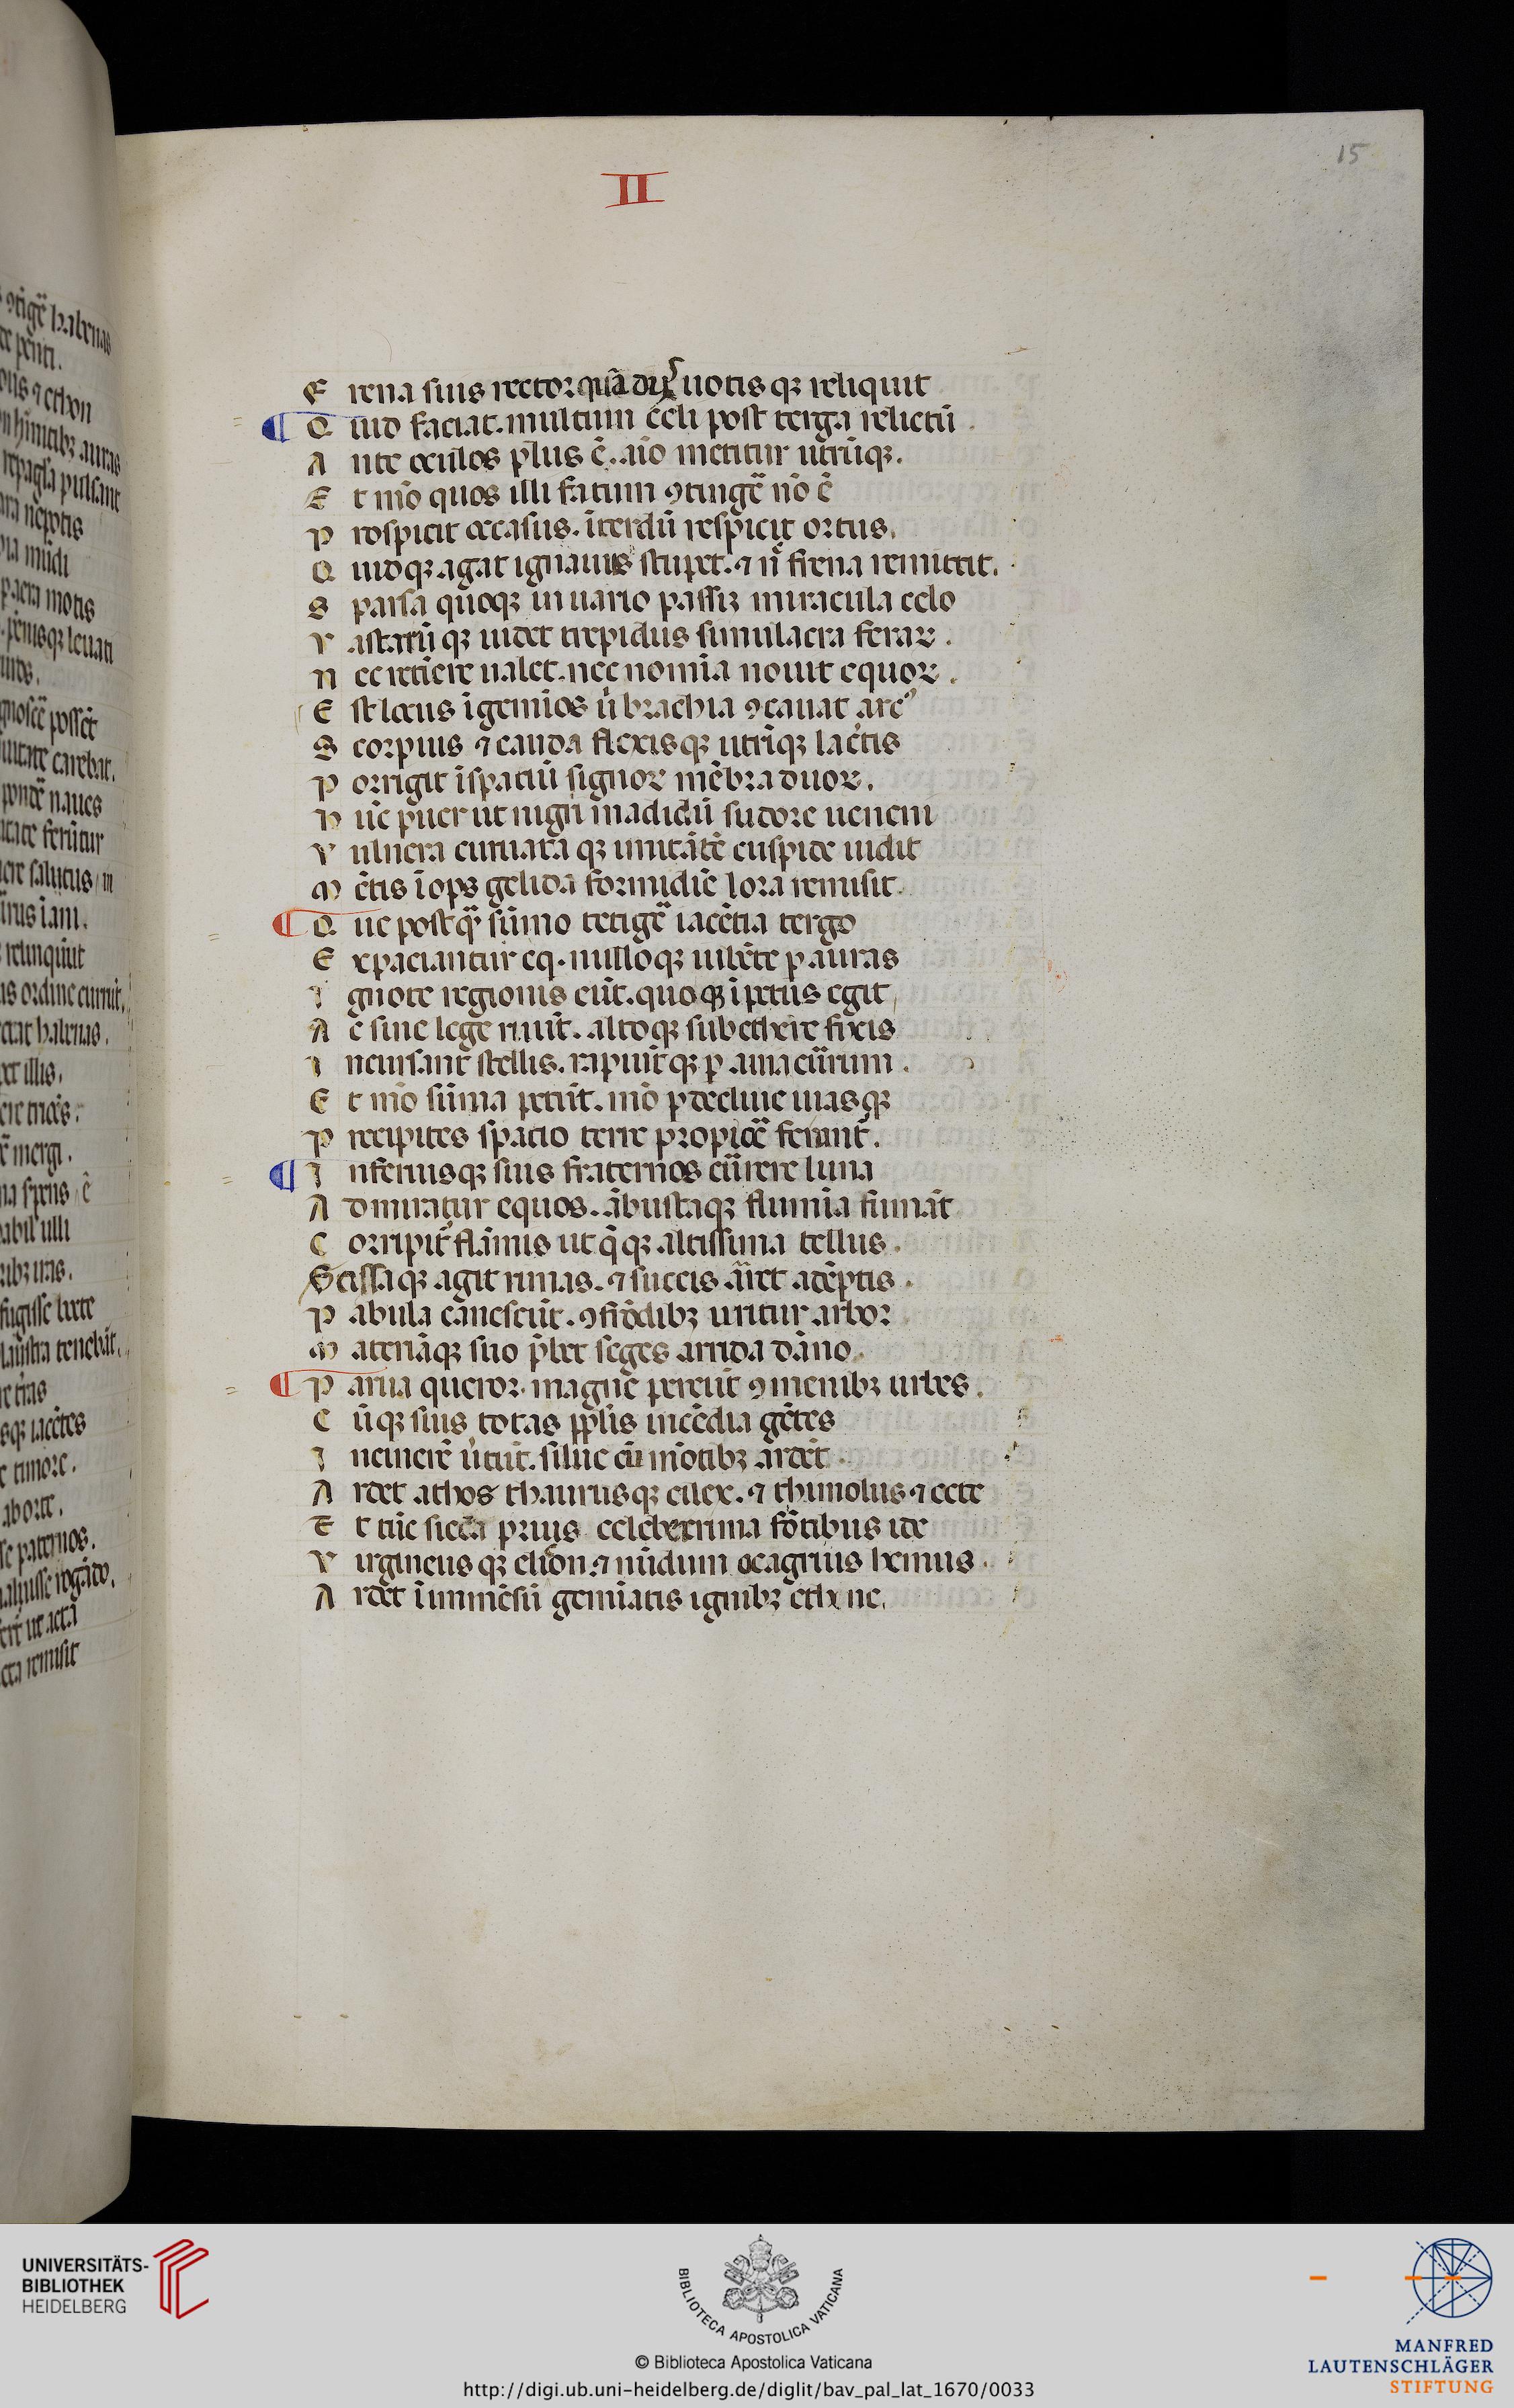 15
II
F rena suus rector quã dijs uotis qꝫ reliquit
Q uid faciat. multum celi post terga relictũ.
A nte oculos plus ẽ. aĩo metitur utrũqꝫ.
E t mõ quos illi fatum ꝯtingẽ nõ ẽ
P rospicit occasus. ĩterdũ respicit ortus.
Q uidqꝫ agat ignarus stupet. ⁊ ñ frena remittit.
S parsa quoqꝫ in uario passiꝫ miracula celo
V astarũ qꝫ uidet trepidus simulacra feraꝝ.
N ec retiẽre ualet. nec nomĩa nouit equoꝝ.
E st locus ĩ gemĩos ũ brachia ꝯcauat arcꝰ
S corpius ⁊ cauda flexisqꝫ utrĩqꝫ lacẽtis
P orrigit ĩ spatiũ signoꝝ mẽbra duoꝝ.
h ũc puer ut nigri madidũ sudore ueneni
V ulnera curuata qꝫ minitãtẽ cuspide uidit
M ẽtis ĩops gelida formidĩe lora remisit.
Q ue postq̃ sũmo tetigẽ iacẽtia tergo
E xpaciantur eq. nulloqꝫ inhĩbẽte ꝑ auras
I gnote regionis eũt. quoqꝫ ĩpetus egit
A c sine lege ruũt. altoqꝫ sub ethere fixis
I ncursant stellis. rapiũtqꝫ ꝑ auia cũrum.
E t mõ sũma petũt. mõ ꝑ decliue uiasqꝫ
P recipites spatio terre propiõẽ ferunt.
I nferiusqꝫ suis fraternos cũrere luna
A dmiratur equos. ãbustaqꝫ flumĩa fumãt
C orripit̃ flãmis ut q̃qꝫ altissima tellus.
S cissaqꝫ agit rimas. ⁊ succis ãret adẽptis.
P abula canescũt. ꝯ frõdibꝫ uritur arbor
M ateriãqꝫ suo p̃bet seges arrida dãno.
P arua queror. magne pereũt ꝯ menibꝫ urbes.
C ũqꝫ suis totas pp̃lis incẽdia gẽtes
I ncinerẽ ũtũt. silue cũ mõtibꝫ ardẽt.
A rdet athos thaurusqꝫ cilex. ⁊ thimolus ⁊ oete
E t tũc sicca prius celeberrima fõtibus ide
V irgineus qꝫ elicon. ⁊ nũdum oeagrius hemus.
A rdet ĩ immẽsũ gemĩatis ignibꝫ ethne.
UNIVERSITÄTS-
BIBLIOTHEK
HEIDELBERG
BIBLIOTECA APOSTOLICA VATICANA
© Biblioteca Apostolica Vaticana
http://digi.ub.uni-heidelberg.de/diglit/bav_pal_lat_1670/0033
MANFRED
LAUTENSCHLÄGER
STIFTUNG